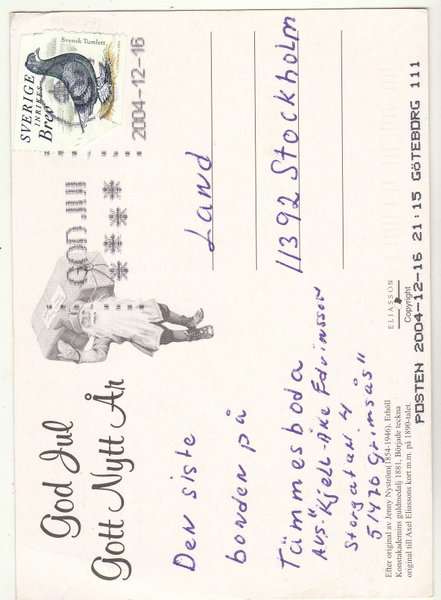 God Jul
Gott Nytt År
Den siste
bonden på
Tämmesboda
Avs: Kjell-Åke Edvinsson
Storgatan 4
51470 Grimsås"
Efter original av Jenny Nyström(1854-1946). Erhöll
Konstakademins guldmedalj 1881, Började teckna
original till Axel Eliassons kort m.m. på 1890-talet.
SVERIGE
INRIKES
Brev
Svensk Tumlett
GOD JUL!
2004-12-16
Land
11392 Stockholm
ELIASSON
Copyright
POSTEN 2004-12-16 21:15 GÖTEBORG 111